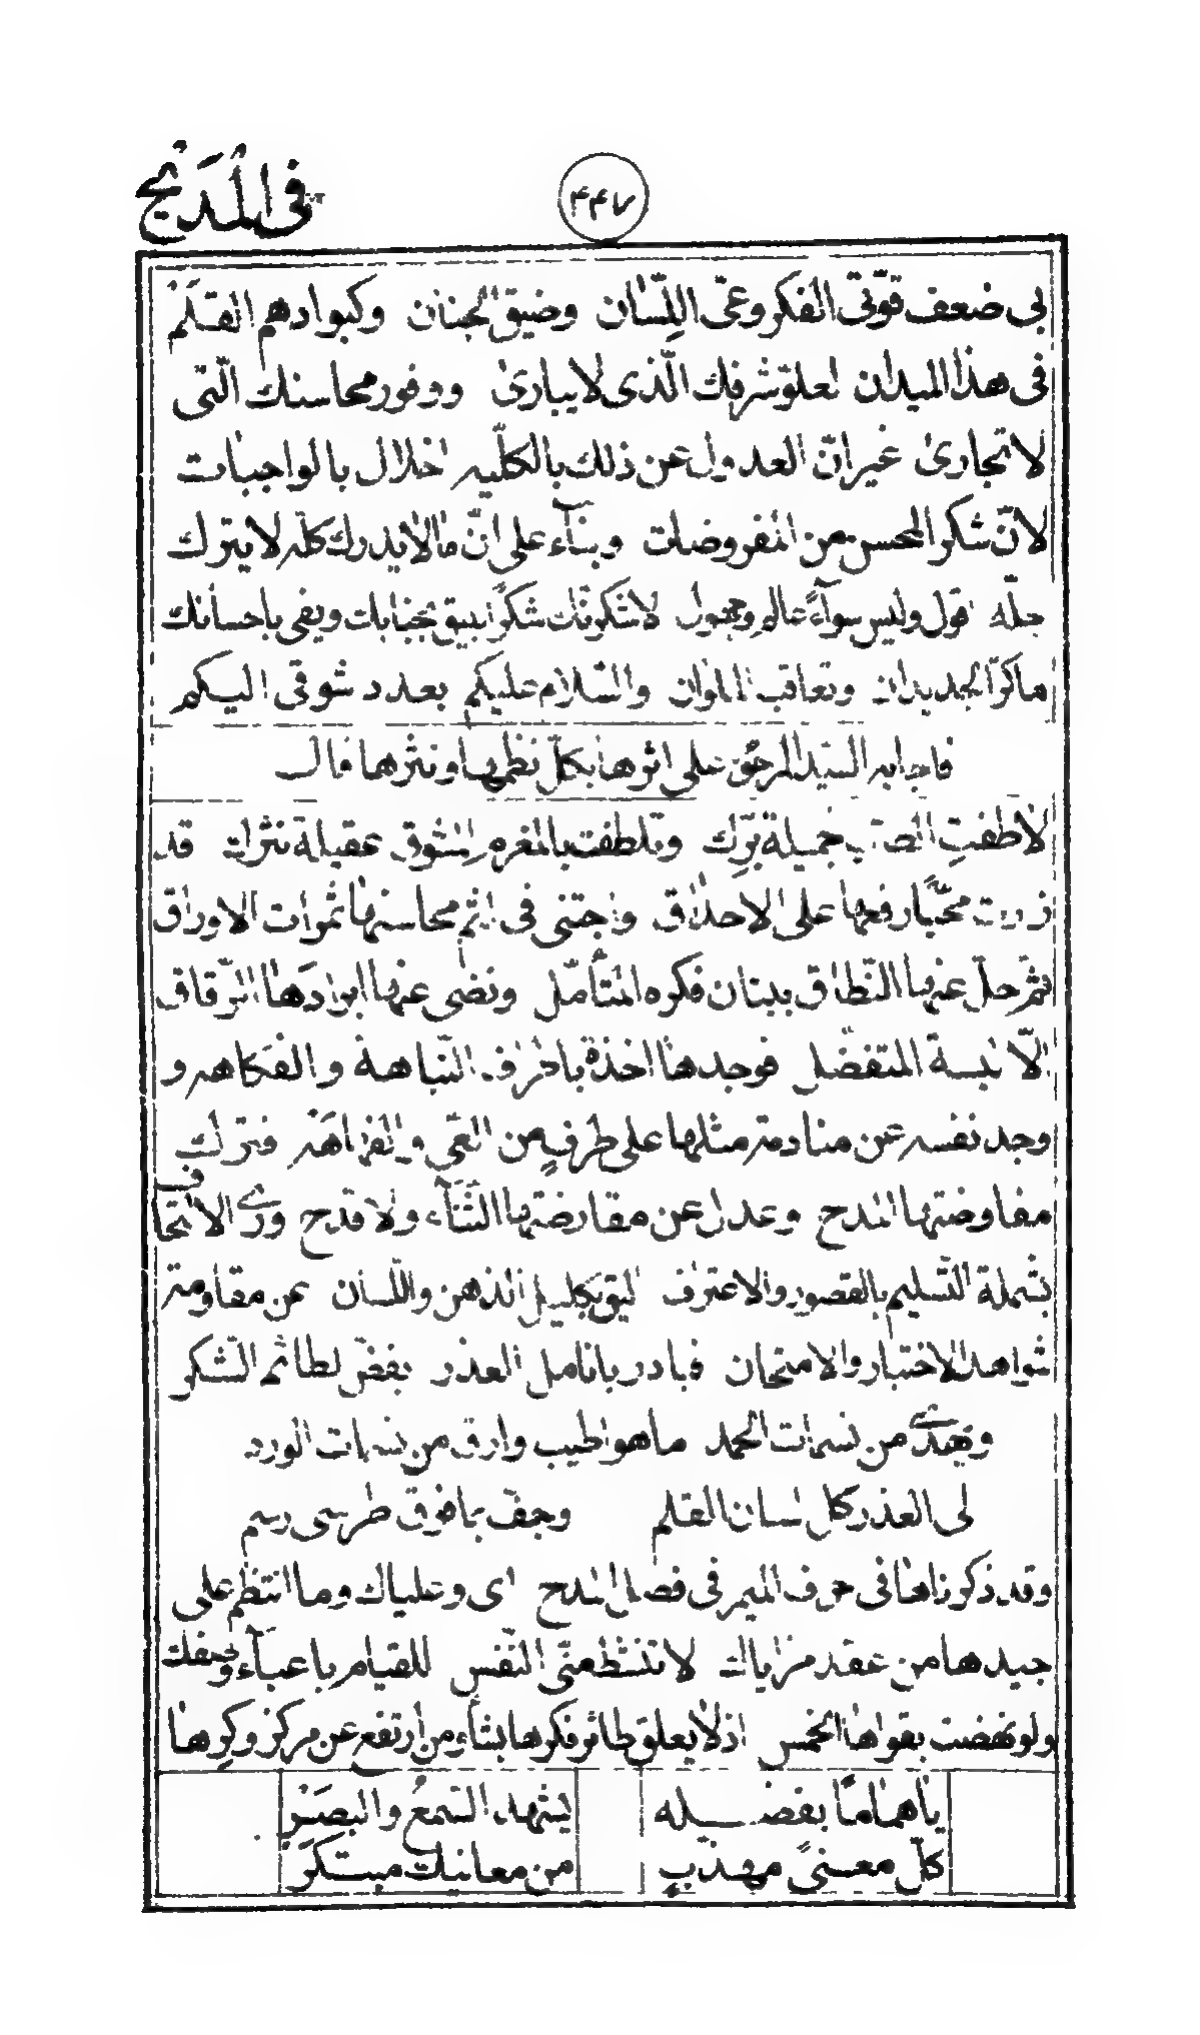 فى المديح
۴۴۷
بى ضعف قوّتى الفكر وعىّ اللّسان وضيق الجنان وكبوادهم القلم
فى هذا الميدان لعلوّ شرفك الّذى لا يبارى ووفور محاسنك الّتى
لا تجارى غير انّ العدول عن ذلك بالكلّيه اخلال بالواجبات
لانّ شكر المحسن من المفروضات وبنآء على انّ ما لا يدرك كلّه لا يترك
جلّه اقول وليس سوآءً عالم وجهول لاشكرنّك شكرًا يبقى بجنابك ويفى باحسانك
ماكرّ الجديدان وتعاقب الملوان والسّلام عليكم بعدد شوقى اليكم
فاجابه السّيّد المرحوم على اثرها بكلّ نظمها ونثرها قال
لاطفتِ الصبّ جميلة برّك وتلطفت بالمغرم المشوق عقيلة نثرك قد
زرت محبًّا رفعها على الاحداق واجتنى فى اثم محاسنها ثمرات الاوراق
ثمّ حلّ عنها النّطاق ببنان فكره المتأمّل ونضى عنها ابرادها الرّقاق
الّا لبسة المتفضّل فوجدها اخذة باطراف النّباهة والفكاهه و
وجد نفسه عن منادمة مثلها على طرفٍ من العىّ والفهاهة فترك
مفاوضتها المدح وعدل عن مقارضتها الثّنآء ولا قدح ورى الاتحاف
بشملة التّسليم بالقصور والاعتراف اليق بكليل الذهن واللّسان عن مقاومة
شواهد الاختبار والامتحان فبادر بانامل العذر بفضّ لطائم الشكر
ويهدى من نسمات الحمد ما هو اطيب وارق من نسمات الورد
لى العذر كلّ لسان القلم وجفّ بما فوق طرسى رسم
وقد ذكرناها فى حرف الميم فى فصل المدح اى وعلياك وما انتظم على
جيدها من عقد مزاياك لا تنشط منّى النّفس للقيام باعبآء وصفك
ولو نهضت بقواها الخمس اذ لا يعلق طائر فكرها بشأو من ارتفع عن مركز وكرها
يا هماما بفضله يشهد السّمعُ والبصر
كلّ معنىً مهذبٍ من معانيك مبتكر